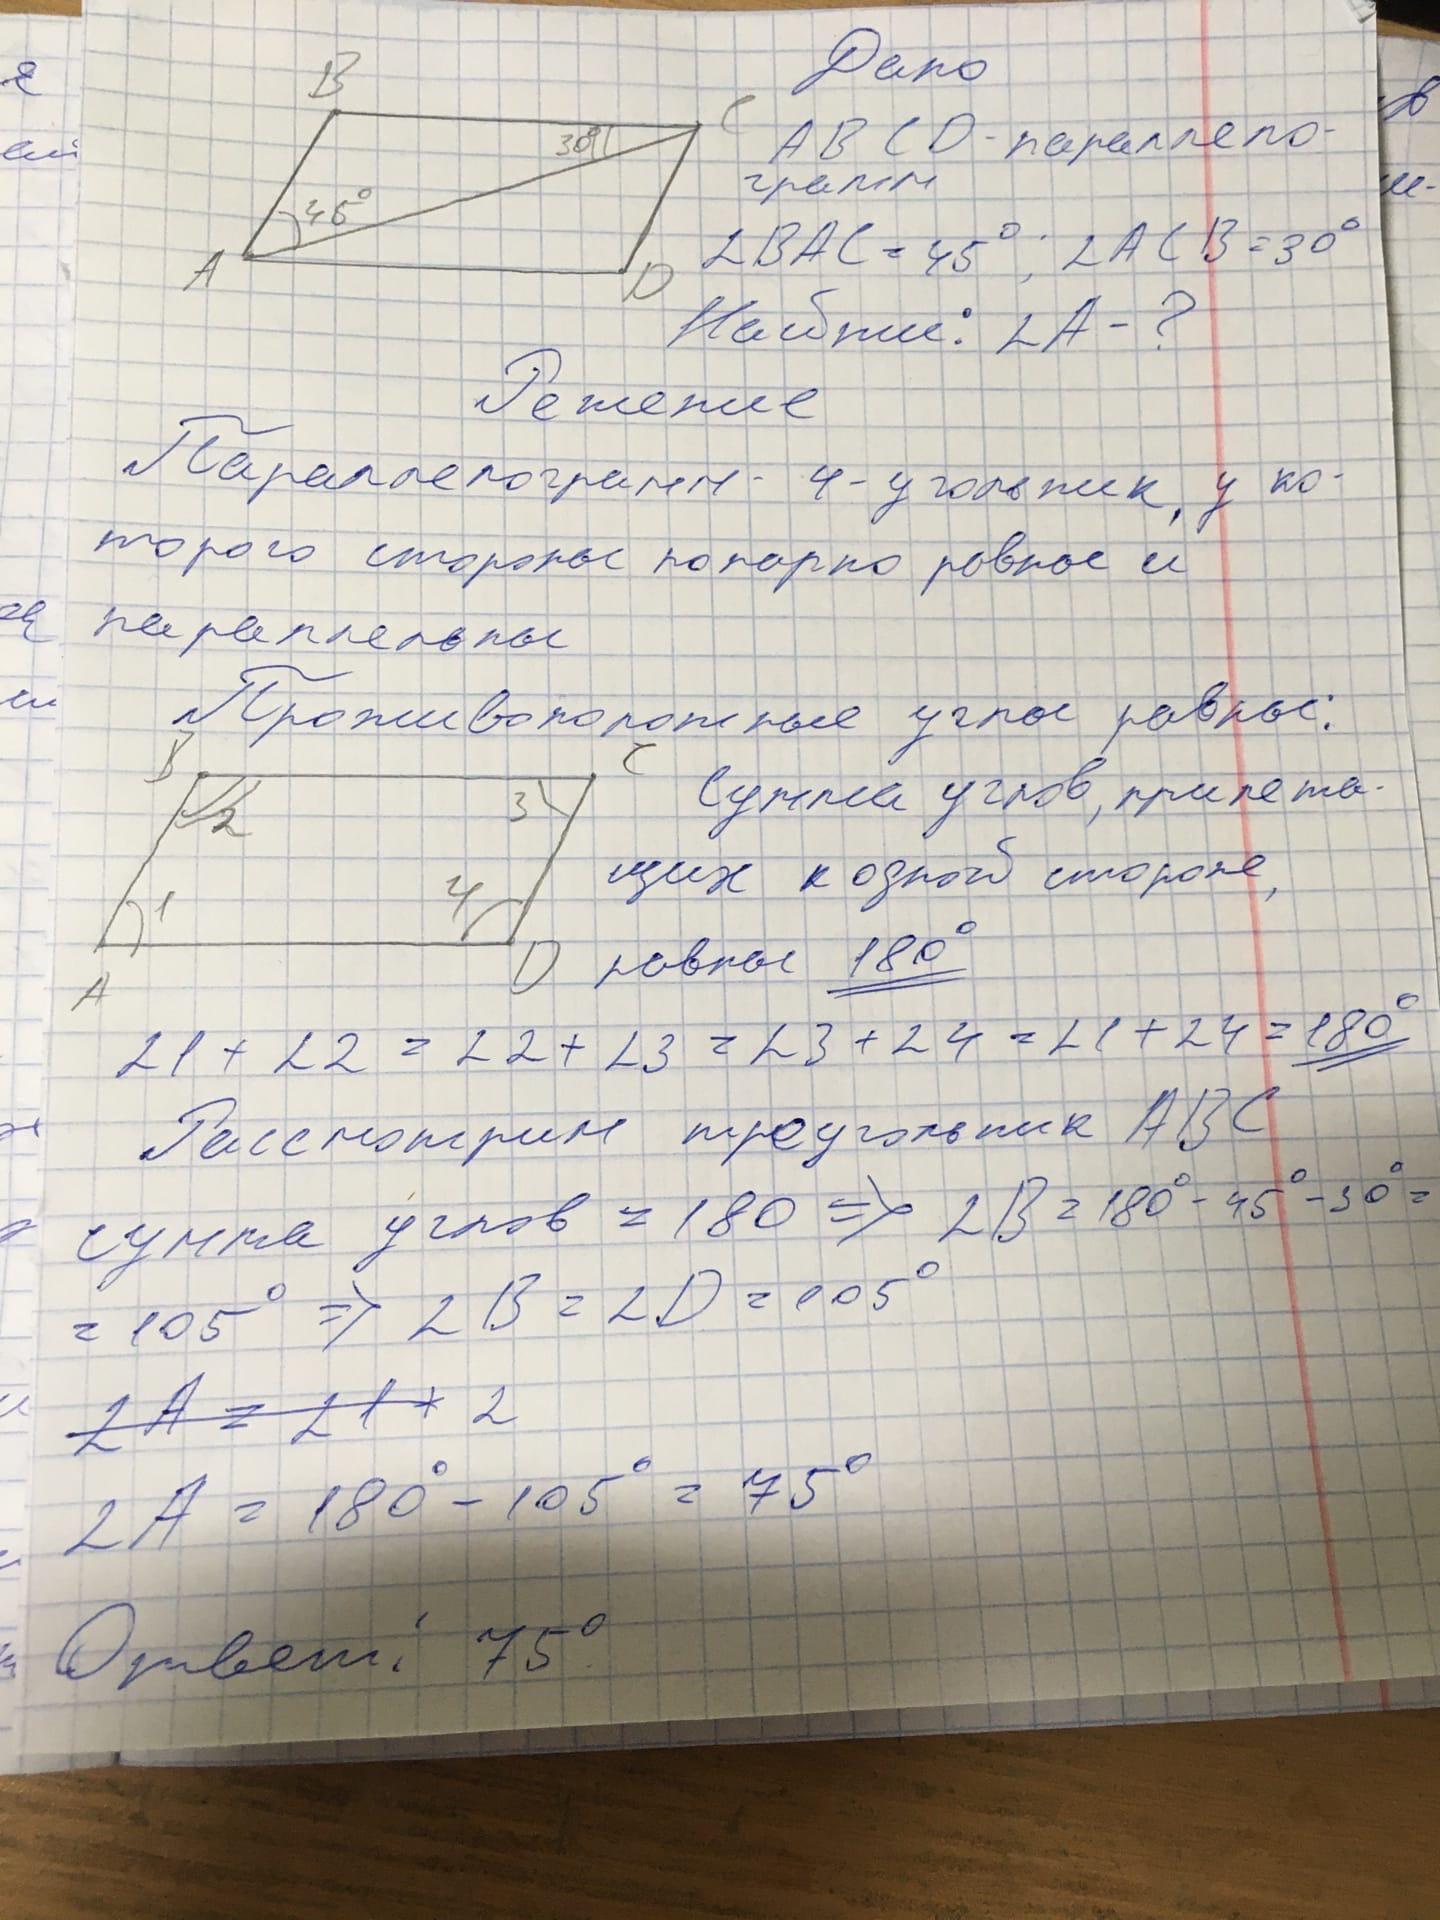 Дано
B
C
30°
ABCD - параллело-
грамм
45°
∠BAC = 45°; ∠ACB = 30°
A
D
Найти: ∠A - ?
Решение
Параллелограмм - 4-угольник, у ко-
торого стороны попарно равны и
параллельны
Противоположные углы равны:
B
C
2
3
Сумма углов, прилежа-
щих к одной стороне,
1
4
A
D
равны 180°
∠1 + ∠2 = ∠2 + ∠3 = ∠3 + ∠4 = ∠1 + ∠4 = 180°
Рассмотрим треугольник ABC
сумма углов = 180 => ∠B = 180° - 45° - 30° =
= 105° => ∠B = ∠D = 105°
∠A = ∠1 + 2
∠A = 180° - 105° = 75°
Ответ: 75°